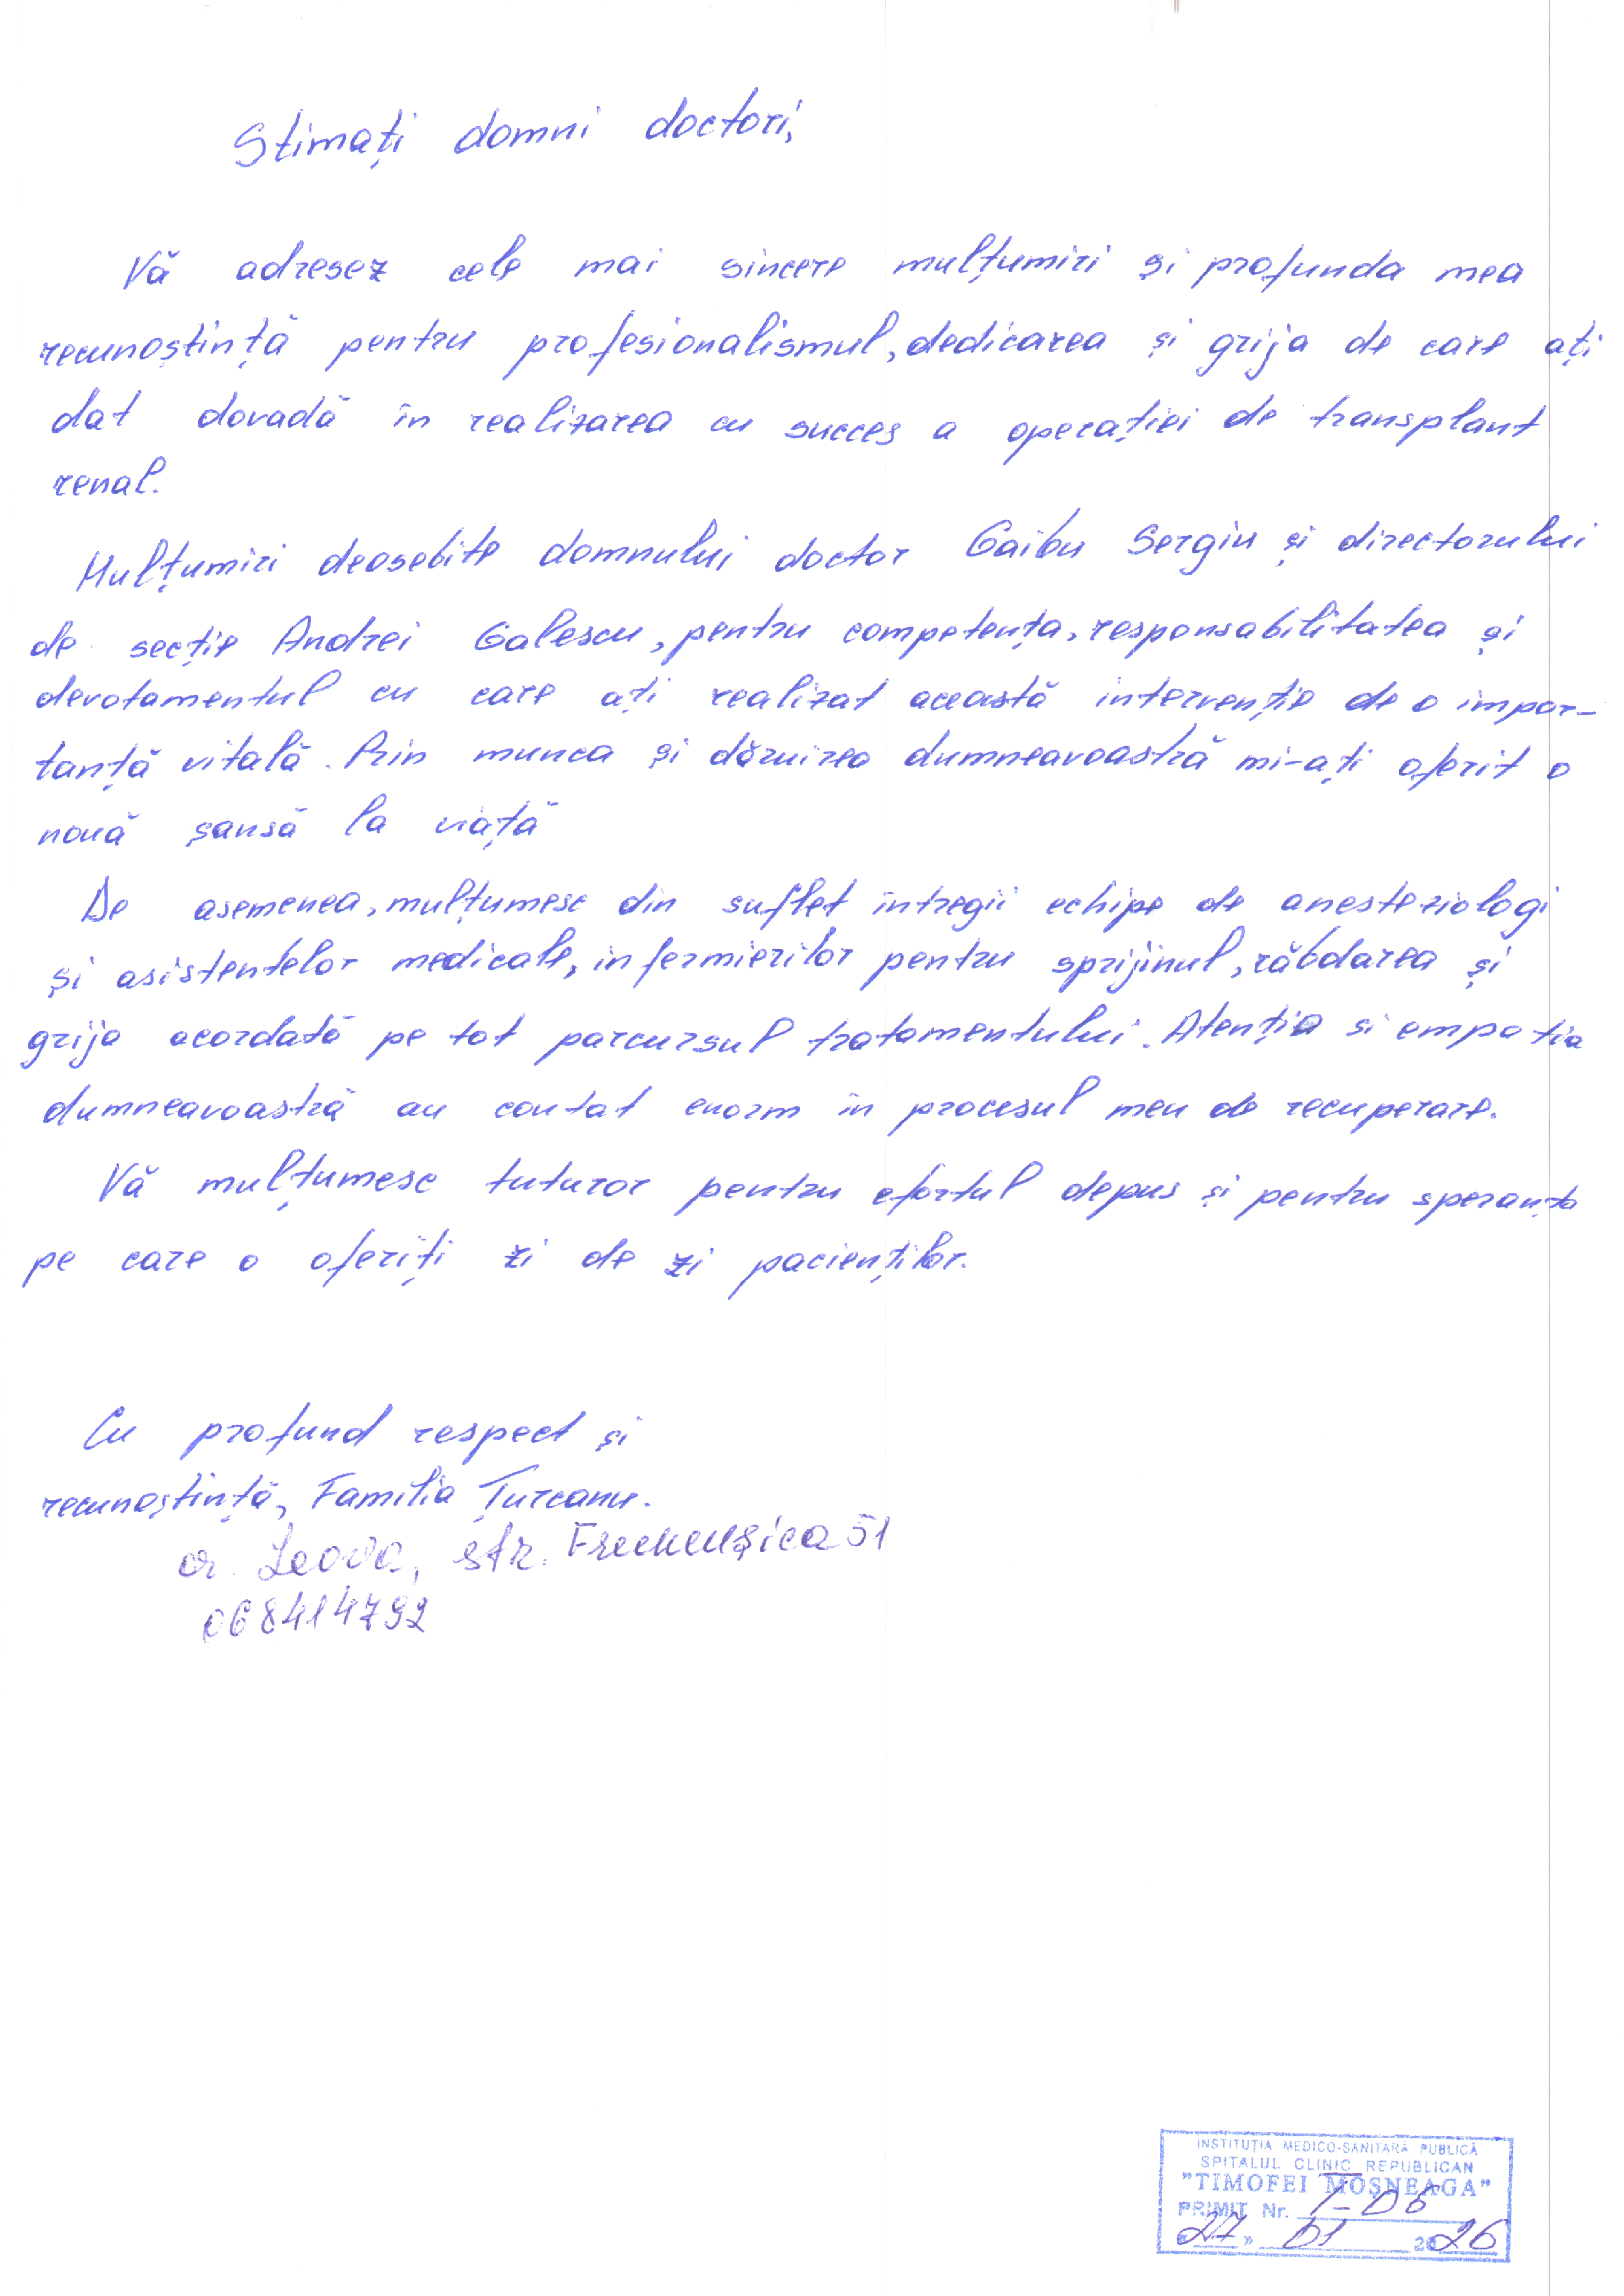 Stimați domni doctori,
Vă adresez cele mai sincere mulțumiri și profunda mea
recunoștință pentru profesionalismul, dedicarea și grija de care ați
dat dovadă în realizarea cu succes a operației de transplant
renal.
Mulțumiri deosebite domnului doctor Gaibu Sergiu și directorului
de secție Andrei Galescu, pentru competența, responsabilitatea și
devotamentul cu care ați realizat această intervenție de o impor-
tanță vitală. Prin munca și dăruirea dumneavoastră mi-ați oferit o
nouă șansă la viață
De asemenea, mulțumesc din suflet întregii echipe de anesteziologi
și asistentelor medicale, infermierilor pentru sprijinul, răbdarea și
grija acordată pe tot parcursul tratamentului. Atenția si empatia
dumneavoastră au contat enorm în procesul meu de recuperare.
Vă mulțumesc tuturor pentru efortul depus și pentru speranța
pe care o oferiți zi de zi pacienților.
Cu profund respect și
recunoștință, Familia Țurcanu.
or. Leova, str. 51
068414792
INSTITUȚIA MEDICO-SANITARĂ PUBLICĂ
SPITALUL CLINIC REPUBLICAN
"TIMOFEI MOȘNEAGA"
PRIMIT Nr. T-06
"27" 01 2026